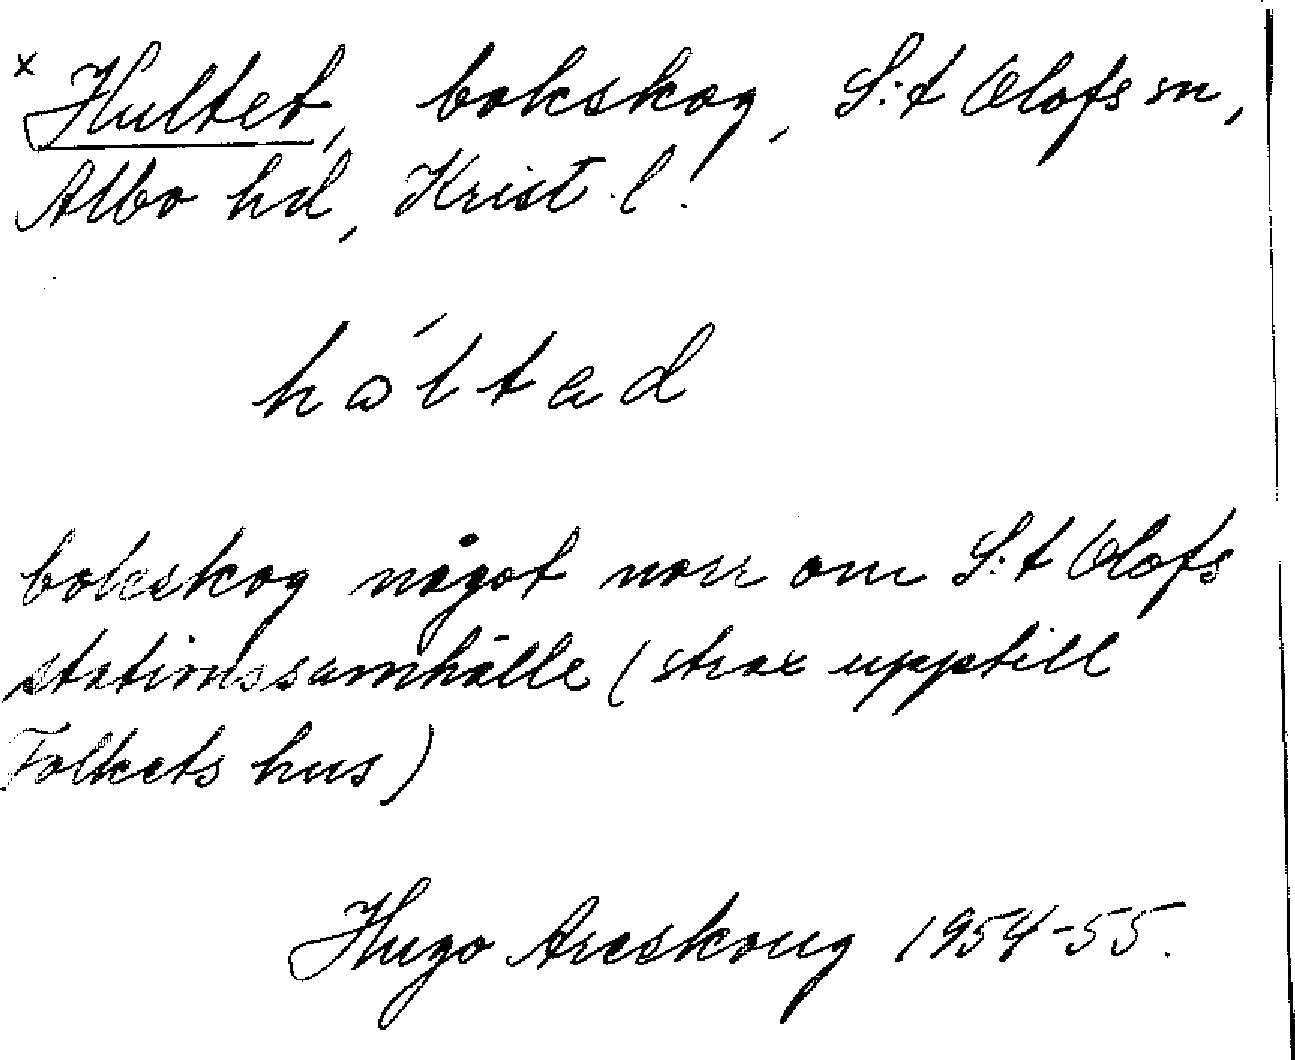 x Hultet, bokskog, S:t Olofs sn,
Albo hd, Krist. l.
håltad
bokskog något norr om S:t Olofs
stationssamhälle (strax upptill
Folkets hus)
Hugo Areskoug 1954-55.